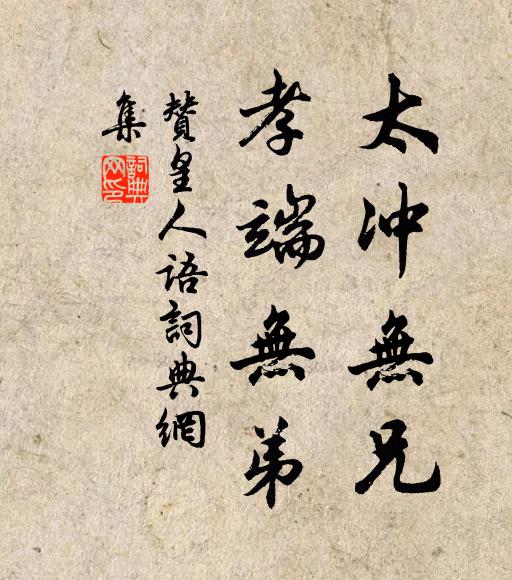 太冲無兄
孝端無弟
贊皇人語詞典網
集
詞典
网印